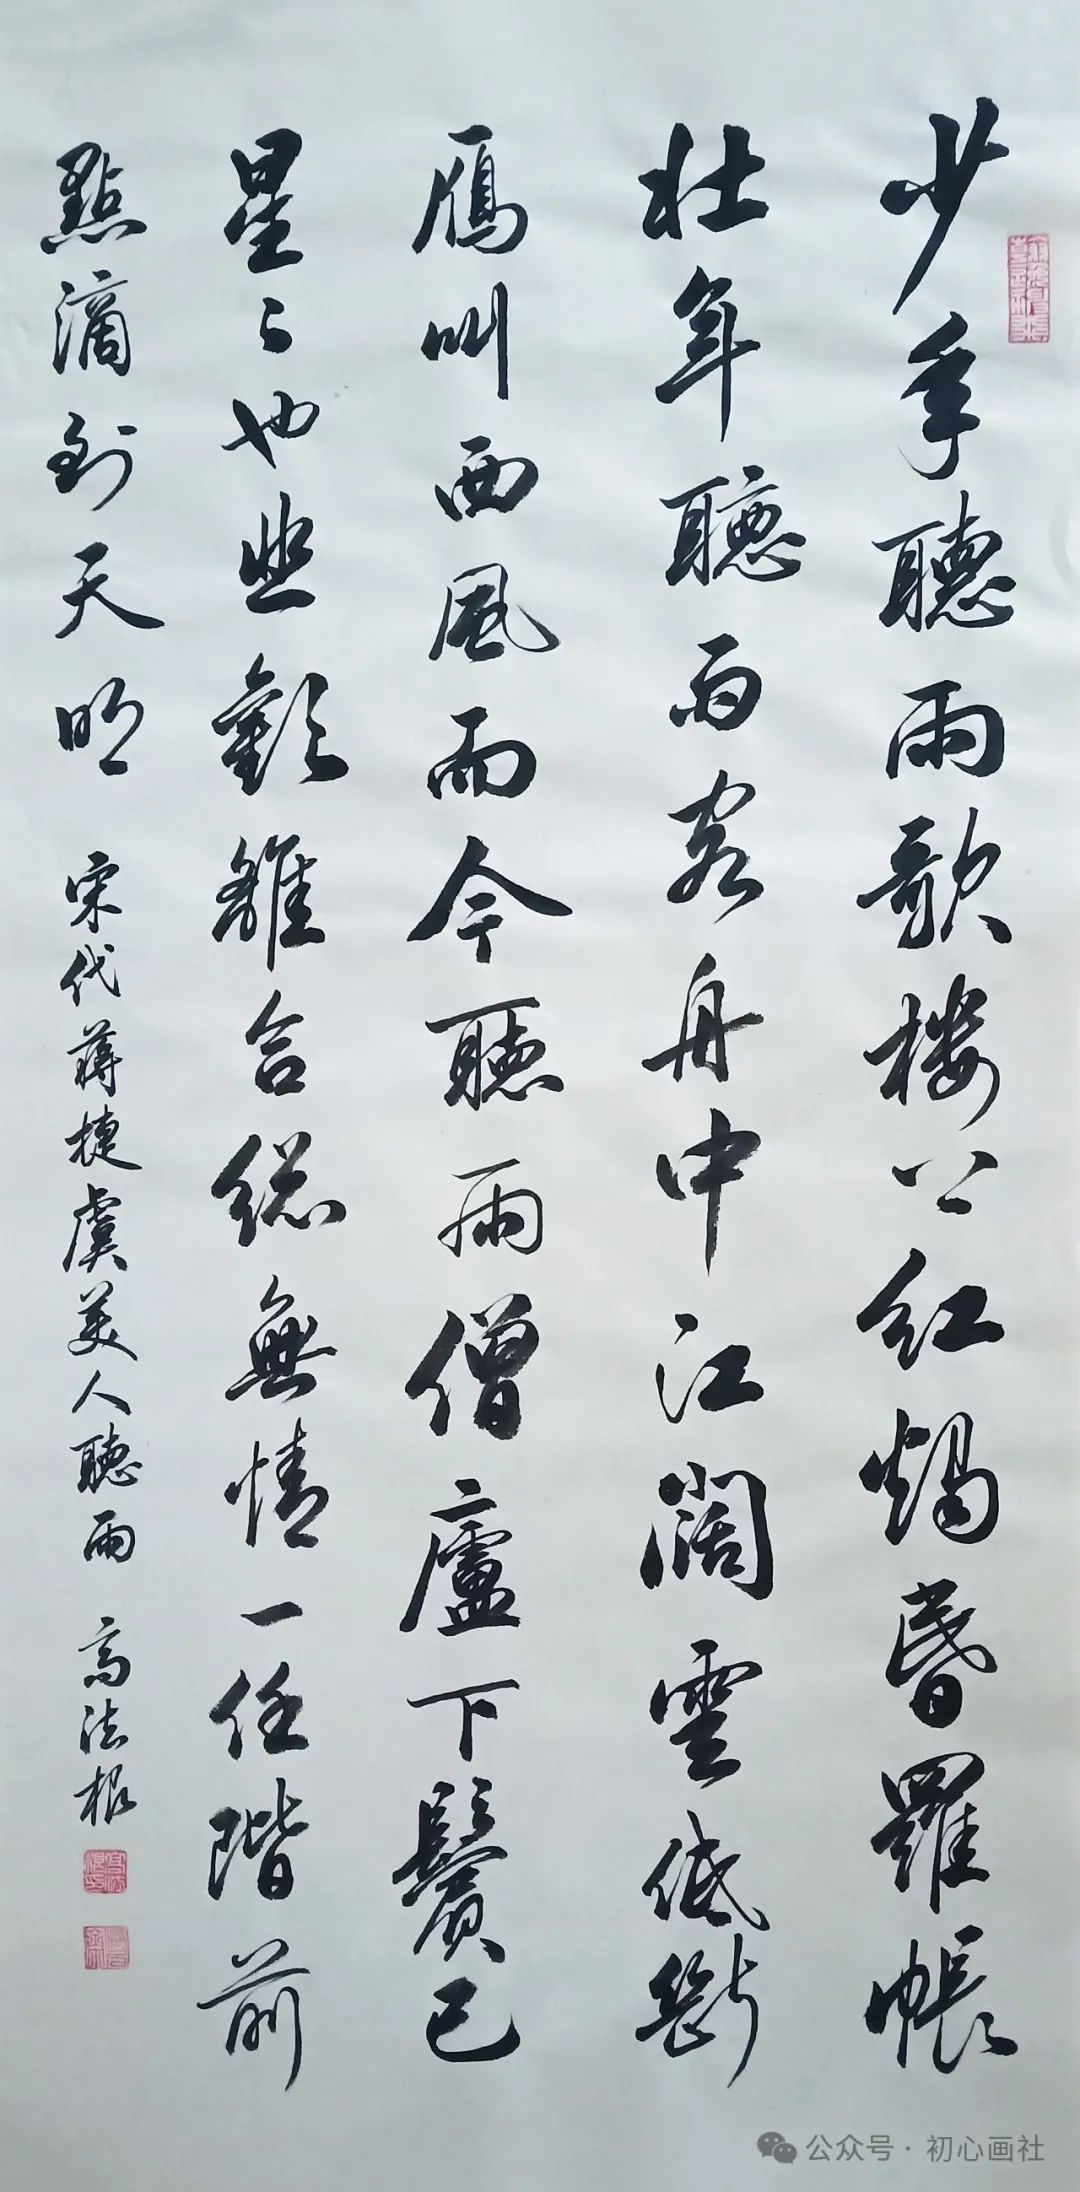 少年聽雨歌樓上红燭昏羅帳
壯年聽雨客舟中江闊雲低斷
雁叫西風而今聽雨僧廬下鬢已
星〻也悲歡離合総無情一任階前
點滴到天明 宋代蔣捷虞美人聽雨 高法根
公众号·初心画社